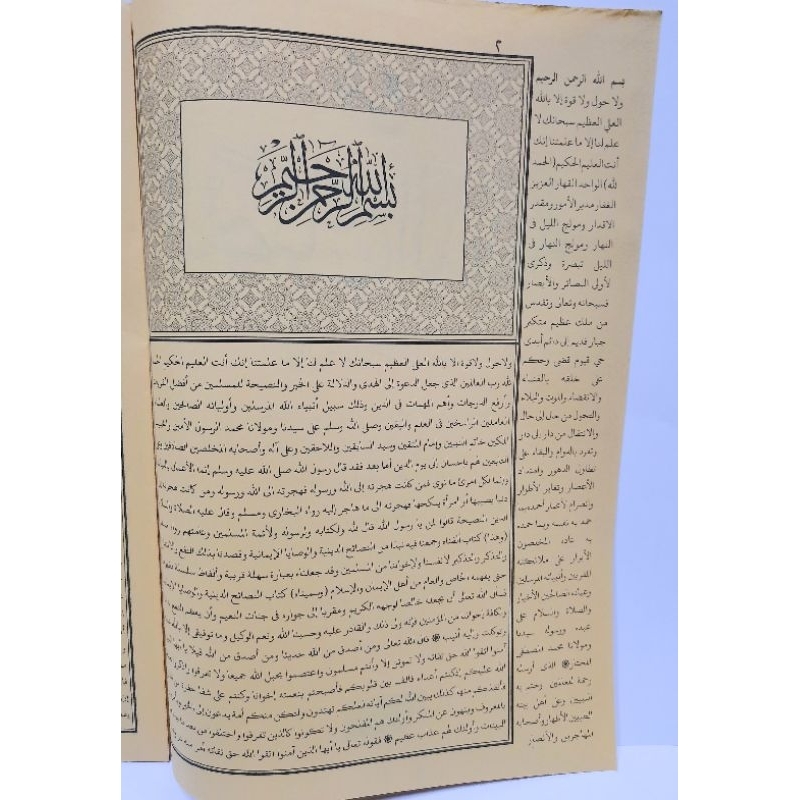 ٢
بسم الله الرحمن الرحيم
ولا حول ولا قوة إلا بالله العلي العظيم سبحانك لا علم لنا إلا ما علمتنا إنك أنت العليم الحكيم الحمد
لله رب العالمين الذي جعل الدعوة إلى الهدى والدلالة على الخير والنصيحة للمسلمين من أفضل القربات
وأرفع الدرجات وأهم المهمات في الدين وذلك سبيل أنبياء الله المرسلين وأوليائه الصالحين والعلماء
العاملين الراسخين في العلم واليقين وصلى الله وسلم على سيدنا ومولانا محمد الرسول الأمين
المكين خاتم النبيين وإمام المتقين وسيد السابقين واللاحقين وعلى آله وأصحابه المخلصين الصادقين
التابعين لهم بإحسان إلى يوم الدين أما بعد فقد قال رسول الله صلى الله عليه وسلم إنما الأعمال بالنيات
وإنما لكل امرئ ما نوى فمن كانت هجرته إلى الله ورسوله فهجرته إلى الله ورسوله ومن كانت هجرته
دنيا يصيبها أو امرأة ينكحها فهجرته إلى ما هاجر إليه رواه البخاري ومسلم وقال عليه الصلاة والسلام
الدين النصيحة قالوا لمن يا رسول الله قال لله ولكتابه ولرسوله ولأئمة المسلمين وعامتهم رواه
(وهذا) كتاب ألفناه وجمعنا فيه نبذا من النصائح الدينية والوصايا الإيمانية وقصدنا بذلك النفع
والتذكر والتذكير لأنفسنا ولإخواننا من المسلمين وقد جعلناه بعبارة سهلة قريبة وألفاظ سلسلة
حتى يفهمه الخاص والعام من أهل الإيمان والإسلام (وسميناه) كتاب النصائح الدينية والوصايا
فنسأل الله تعالى أن يجعله خالصا لوجهه الكريم ومقربا إلى جواره في جنات النعيم وأن يعظم النفع
وكافة إخواننا من المؤمنين فإنه ولي ذلك والقادر عليه وحسبنا الله ونعم الوكيل وما توفيقي إلا بالله
توكلت وإليه أنيب ۞ قال الله تعالى ومن أصدق من الله حديثا ومن أصدق من الله قيلا يا أيها
آمنوا اتقوا الله حق تقاته ولا تموتن إلا وأنتم مسلمون واعتصموا بحبل الله جميعا ولا تفرقوا واذكروا
الله عليكم إذ كنتم أعداء فألف بين قلوبكم فأصبحتم بنعمته إخوانا وكنتم على شفا حفرة
فأنقذكم منها كذلك يبين الله لكم آياته لعلكم تهتدون ولتكن منكم أمة يدعون إلى
بالمعروف وينهون عن المنكر وأولئك هم المفلحون ولا تكونوا كالذين تفرقوا واختلفوا من بعد
البينات وأولئك لهم عذاب عظيم ۞ فقوله تعالى يا أيها الذين آمنوا اتقوا الله حق تقاته
بسم الله الرحمن الرحيم
ولا حول ولا قوة إلا بالله
العلي العظيم سبحانك لا
علم لنا إلا ما علمتنا إنك
أنت العليم الحكيم (الحمد
لله) الواحد القهار العزيز
الغفار مدبر الأمور ومقدر
الأقدار ومولج الليل في
النهار ومولج النهار في
الليل تبصرة وذكرى
لأولي البصائر والأبصار
فسبحانه وتعالى وتقدس
من ملك عظيم متكبر
جبار قديم أزلي دائم أبدي
حي قيوم قضى وحكم
على خلقه بالفناء
والانقضاء والموت والبلاء
والتحول من حال إلى حال
والانتقال من دار إلى دار
وتفرد بالدوام والبقاء على
تطاول الدهور وامتداد
الأعصار وتغاير الأطوار
وانصرام الأعمار أحمده بما
حمد به نفسه وبما حمده
به عباده المخصوصون
الأبرار من ملائكته
المقربين وأنبيائه المرسلين
وعباده الصالحين الأخيار
والصلاة والسلام على
عبده ورسوله سيدنا
ومولانا محمد المصطفى
المختار ۞ الذي أرسله
رحمة للعالمين وختم به
النبيين وعلى أهل بيته
الطيبين الأطهار وأصحابه
المهاجرين والأنصار